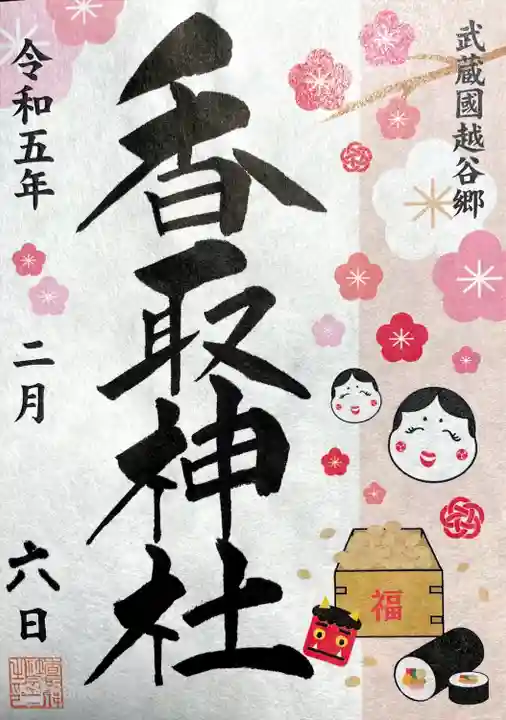 武蔵國越谷郷
香取神社
令和五年 二月 六日
福